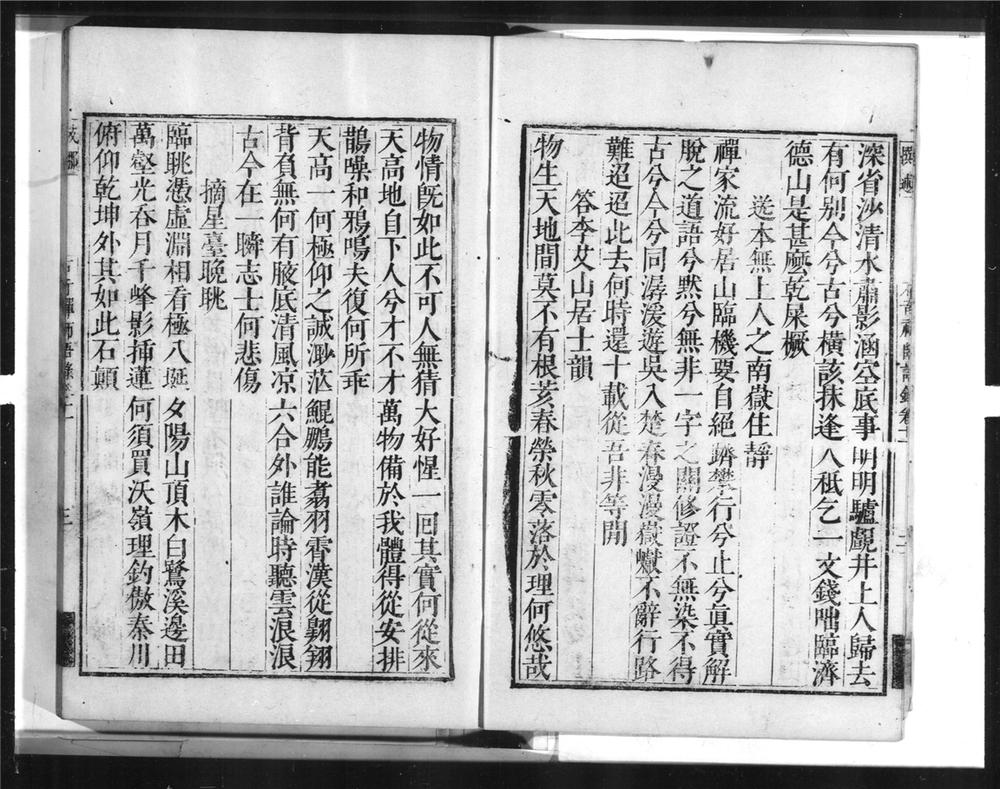 深省沙清水肅影涵空底事明明驢覷井上人歸去
有何別今兮古兮橫該抹逢人秪乞一文錢咄臨濟
德山是甚麼乾屎橛
送本無上人之南嶽住靜
禪家流好居山臨機要自絕躋攀行兮止兮眞實解
脫之道語兮默兮無非一字之關修證不無染不得
古兮今兮同潺湲遊吳入楚春漫漫嶽巘不辭行路
難迢迢此去何時還十載從吾非等閒
答李艾山居士韻
物生天地間莫不有根荄春榮秋零落於理何悠哉
物情旣如此不可人無猜大好惺一回其實何從來
天高地自下人兮才不才萬物備於我體得從安排
鵲噪和鴉鳴夫復何所乖
天高一何極仰之誠渺茫鯤鵬能翥羽霄漢從翺翔
背負無何有腋底清風凉六合外誰論時聽雲浪浪
古今在一瞬志士何悲傷
摘星臺晚眺
臨眺憑虛淵相看極八埏夕陽山頂木白鷺溪邊田
萬壑光吞月千峰影揷蓮何須買沃嶺理釣傲秦川
俯仰乾坤外其如此石顛